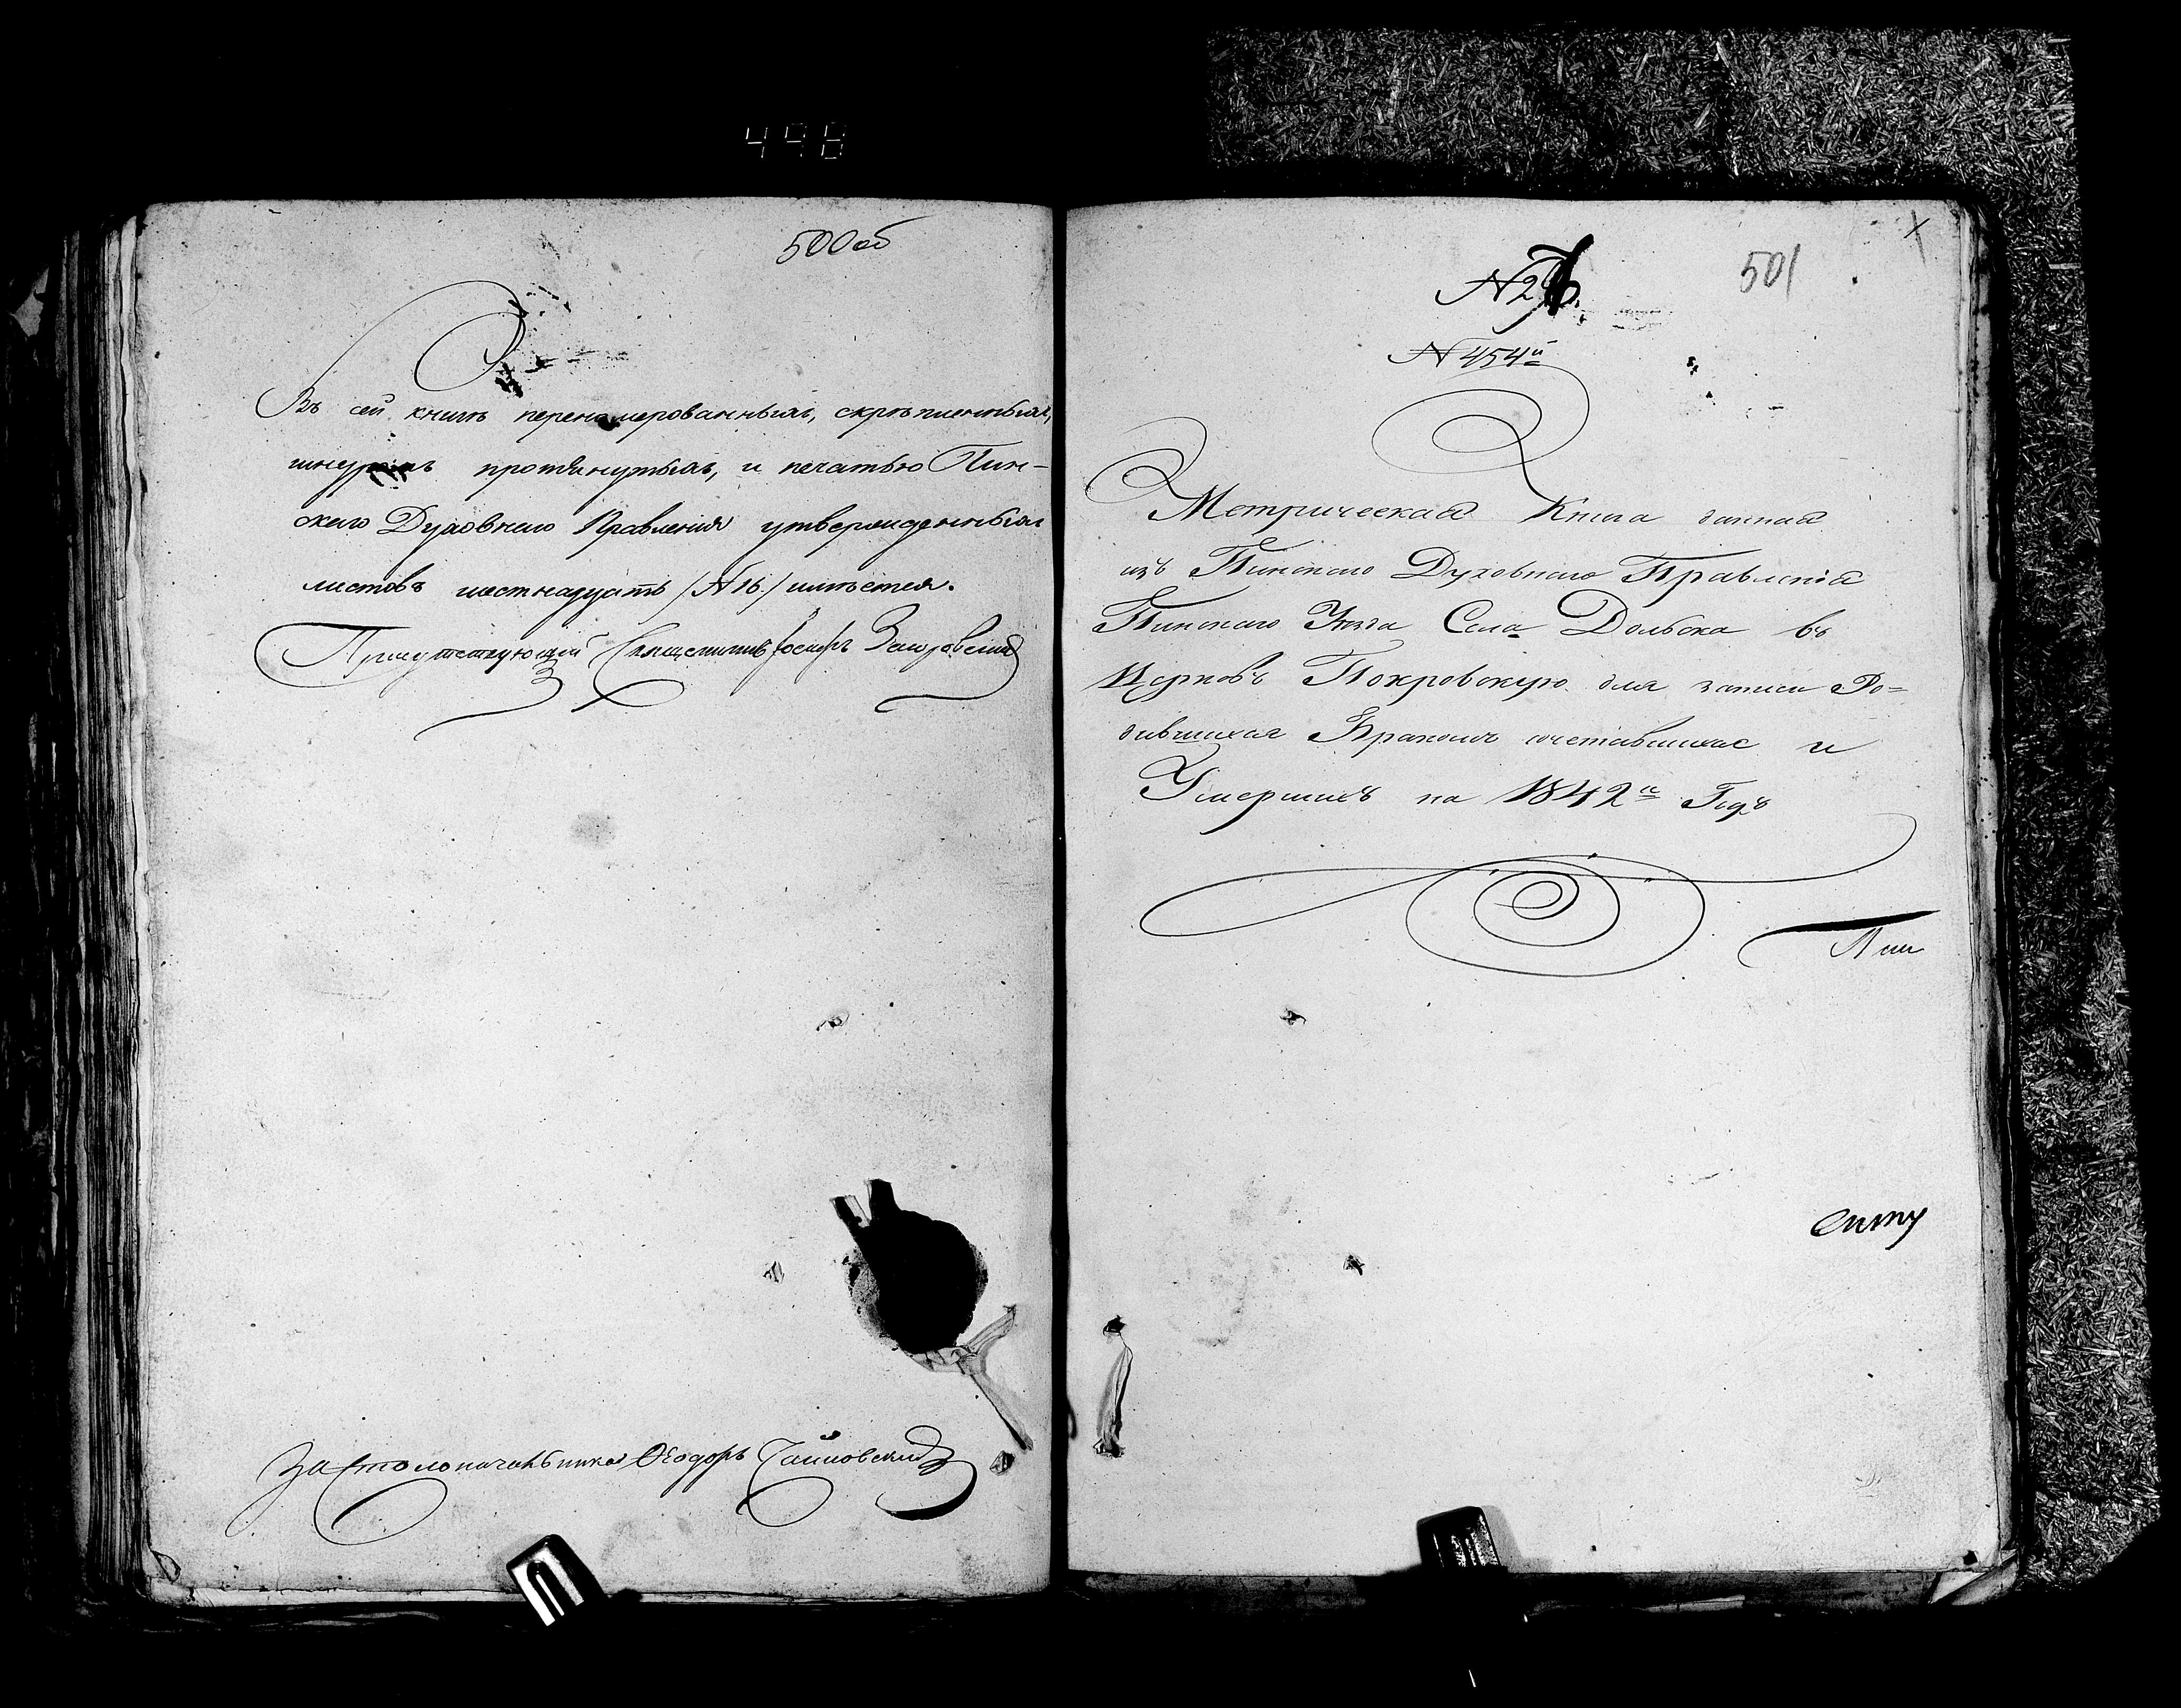 498
500 об
Въ сей книгѣ перенумерованныхъ, скрѣпленныхъ,
шнуромъ протянутыхъ, и печатью Пин-
скаго Духовнаго Правленія утвержденныхъ
листовъ шестнадцать /№ 16./ имѣется.
Присутствующій Священникъ Іосифъ
За Столоначальника Ѳеодоръ
501
№ 2
№ 454й
Метрическая Книга данная
изъ Пинскаго Духовнаго Правленія
Пинскаго Уѣзда Села Дольска въ
Церковь Покровскую для записи Ро=
дившихся Бракомъ сочетавшихся и
Умершихъ на 1842й Годъ
Пин